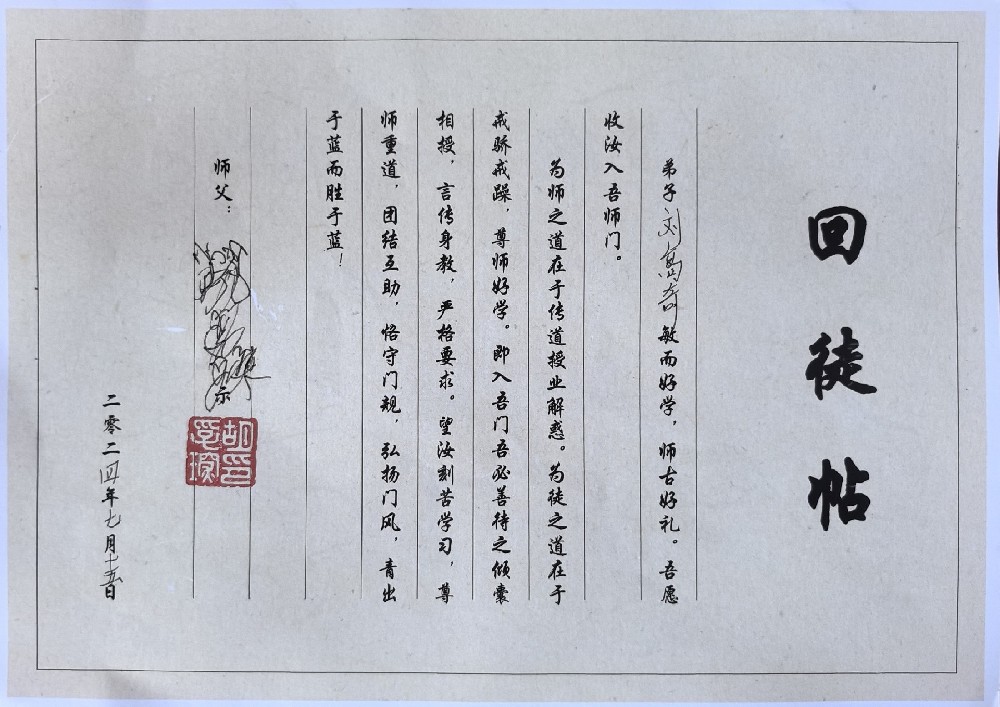 回徒帖
弟子刘高奇敏而好学，师古好礼。吾愿
收汝入吾师门。
为师之道在于传道授业解惑。为徒之道在于
戒骄戒躁，尊师好学。即入吾门吾必善待之倾囊
相授，言传身教，严格要求。望汝刻苦学习，尊
师重道，团结互助，恪守门规，弘扬门风，青出
于蓝而胜于蓝！
师父：
二零二四年七月十五日